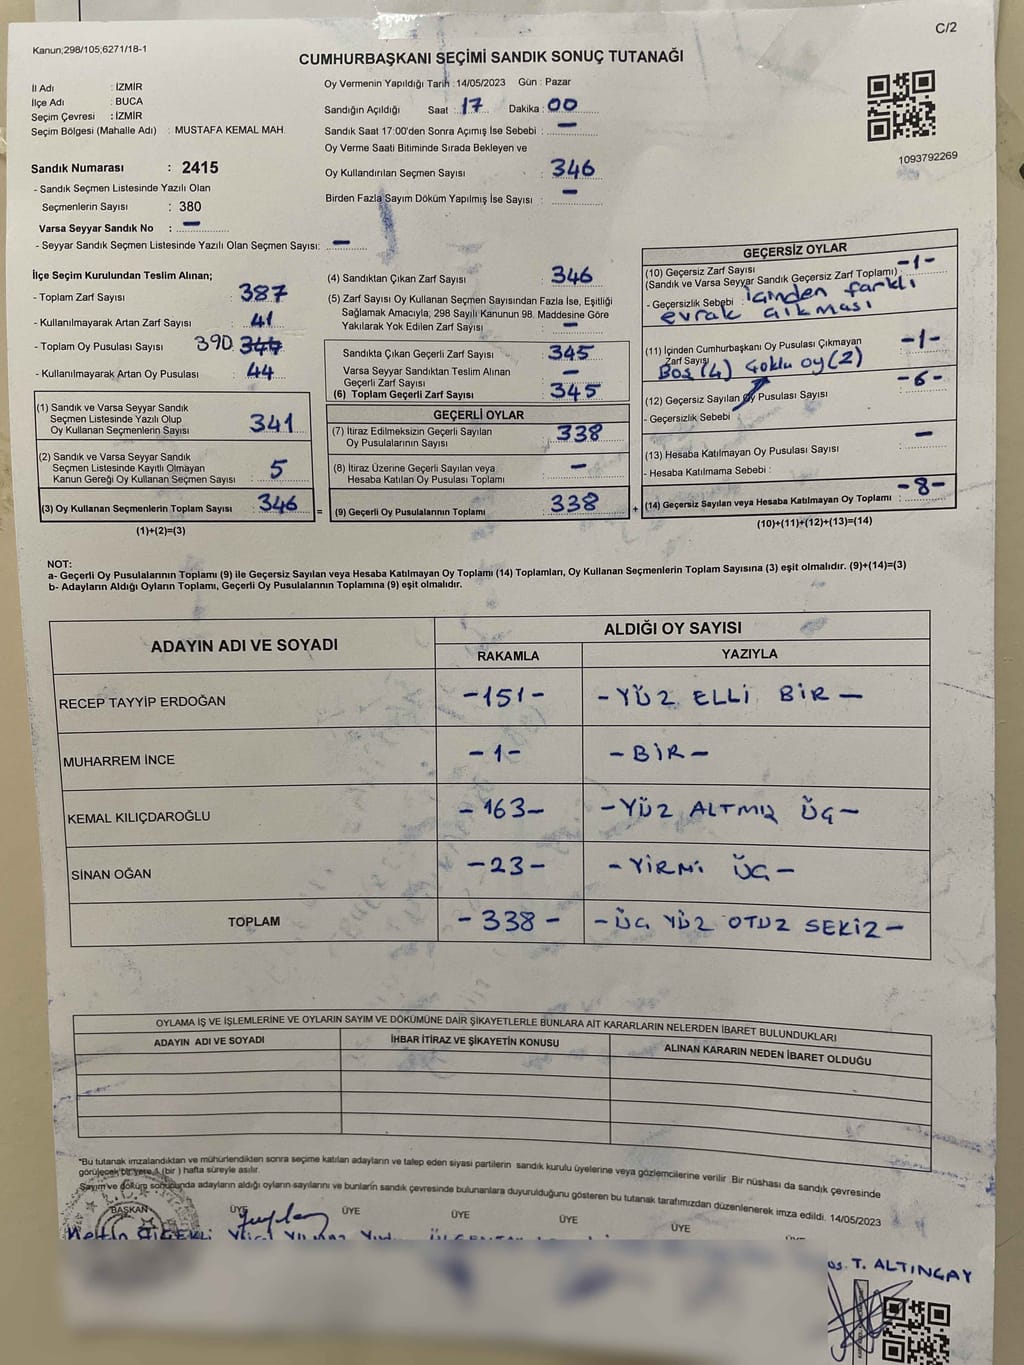 C/2
Kanun;298/105;6271/18-1
CUMHURBAŞKANI SEÇİMİ SANDIK SONUÇ TUTANAĞI
İl Adı : İZMİR
İlçe Adı : BUCA
Seçim Çevresi : İZMİR
Seçim Bölgesi (Mahalle Adı) : MUSTAFA KEMAL MAH.
Sandık Numarası : 2415
- Sandık Seçmen Listesinde Yazılı Olan
Seçmenlerin Sayısı : 380
Varsa Seyyar Sandık No : —
- Seyyar Sandık Seçmen Listesinde Yazılı Olan Seçmen Sayısı: —
Oy Vermenin Yapıldığı Tarih : 14/05/2023 Gün : Pazar
Sandığın Açıldığı Saat : 17 Dakika : 00
Sandık Saat 17:00'den Sonra Açımış İse Sebebi : —
Oy Verme Saati Bitiminde Sırada Bekleyen ve
Oy Kullandırılan Seçmen Sayısı : 346
Birden Fazla Sayım Döküm Yapılmış İse Sayısı : —
1093792269
İlçe Seçim Kurulundan Teslim Alınan;
- Toplam Zarf Sayısı : 387
- Kullanılmayarak Artan Zarf Sayısı : 41
- Toplam Oy Pusulası Sayısı 390 344
- Kullanılmayarak Artan Oy Pusulası : 44
(1) Sandık ve Varsa Seyyar Sandık
Seçmen Listesinde Yazılı Olup
Oy Kullanan Seçmenlerin Sayısı : 341
(2) Sandık ve Varsa Seyyar Sandık
Seçmen Listesinde Kayıtlı Olmayan
Kanun Gereği Oy Kullanan Seçmen Sayısı : 5
(3) Oy Kullanan Seçmenlerin Toplam Sayısı : 346
(1)+(2)=(3)
(4) Sandıktan Çıkan Zarf Sayısı : 346
(5) Zarf Sayısı Oy Kullanan Seçmen Sayısından Fazla İse, Eşitliği
Sağlamak Amacıyla; 298 Sayılı Kanunun 98. Maddesine Göre
Yakılarak Yok Edilen Zarf Sayısı : —
Sandıkta Çıkan Geçerli Zarf Sayısı : 345
Varsa Seyyar Sandıktan Teslim Alınan
Geçerli Zarf Sayısı : —
(6) Toplam Geçerli Zarf Sayısı : 345
GEÇERLİ OYLAR
(7) İtiraz Edilmeksizin Geçerli Sayılan
Oy Pusulalarının Sayısı : 338
(8) İtiraz Üzerine Geçerli Sayılan veya
Hesaba Katılan Oy Pusulası Toplamı : —
= (9) Geçerli Oy Pusulalarının Toplamı : 338
GEÇERSİZ OYLAR
(10) Geçersiz Zarf Sayısı -1-
(Sandık ve Varsa Seyyar Sandık Geçersiz Zarf Toplamı) :
- Geçersizlik Sebebi : içinden farklı
evrak çıkması
(11) İçinden Cumhurbaşkanı Oy Pusulası Çıkmayan
Zarf Sayısı : -1-
Boş (4) Çoklu oy (2)
(12) Geçersiz Sayılan Oy Pusulası Sayısı : -6-
- Geçersizlik Sebebi :
(13) Hesaba Katılmayan Oy Pusulası Sayısı : —
- Hesaba Katılmama Sebebi :
+ (14) Geçersiz Sayılan veya Hesaba Katılmayan Oy Toplamı : -8-
(10)+(11)+(12)+(13)=(14)
NOT:
a- Geçerli Oy Pusulalarının Toplamı (9) ile Geçersiz Sayılan veya Hesaba Katılmayan Oy Toplamı (14) Toplamları, Oy Kullanan Seçmenlerin Toplam Sayısına (3) eşit olmalıdır. (9)+(14)=(3)
b- Adayların Aldığı Oyların Toplamı, Geçerli Oy Pusulalarının Toplamına (9) eşit olmalıdır.
ADAYIN ADI VE SOYADI
ALDIĞI OY SAYISI
RAKAMLA YAZIYLA
RECEP TAYYİP ERDOĞAN -151- -YÜZ ELLİ BİR-
MUHARREM İNCE -1- -BİR-
KEMAL KILIÇDAROĞLU -163- -YÜZ ALTMIŞ ÜÇ-
SİNAN OĞAN -23- -YİRMİ ÜÇ-
TOPLAM -338- -ÜÇ YÜZ OTUZ SEKİZ-
OYLAMA İŞ VE İŞLEMLERİNE VE OYLARIN SAYIM VE DÖKÜMÜNE DAİR ŞİKAYETLERLE BUNLARA AİT KARARLARIN NELERDEN İBARET BULUNDUKLARI
ADAYIN ADI VE SOYADI İHBAR İTİRAZ VE ŞİKAYETİN KONUSU ALINAN KARARIN NEDEN İBARET OLDUĞU
"Bu tutanak imzalandıktan ve mühürlendikten sonra seçime katılan adayların ve talep eden siyasi partilerin sandık kurulu üyelerine veya gözlemcilerine verilir .Bir nüshası da sandık çevresinde
görülecek bir yere 1 (bir ) hafta süreyle asılır.
Sayım ve döküm sonucunda adayların aldığı oyların sayılarını ve bunların sandık çevresinde bulunanlara duyurulduğunu gösteren bu tutanak tarafımızdan düzenlenerek imza edildi. 14/05/2023
BAŞKAN ÜYE ÜYE ÜYE ÜYE ÜYE
T. ALTINÇAY